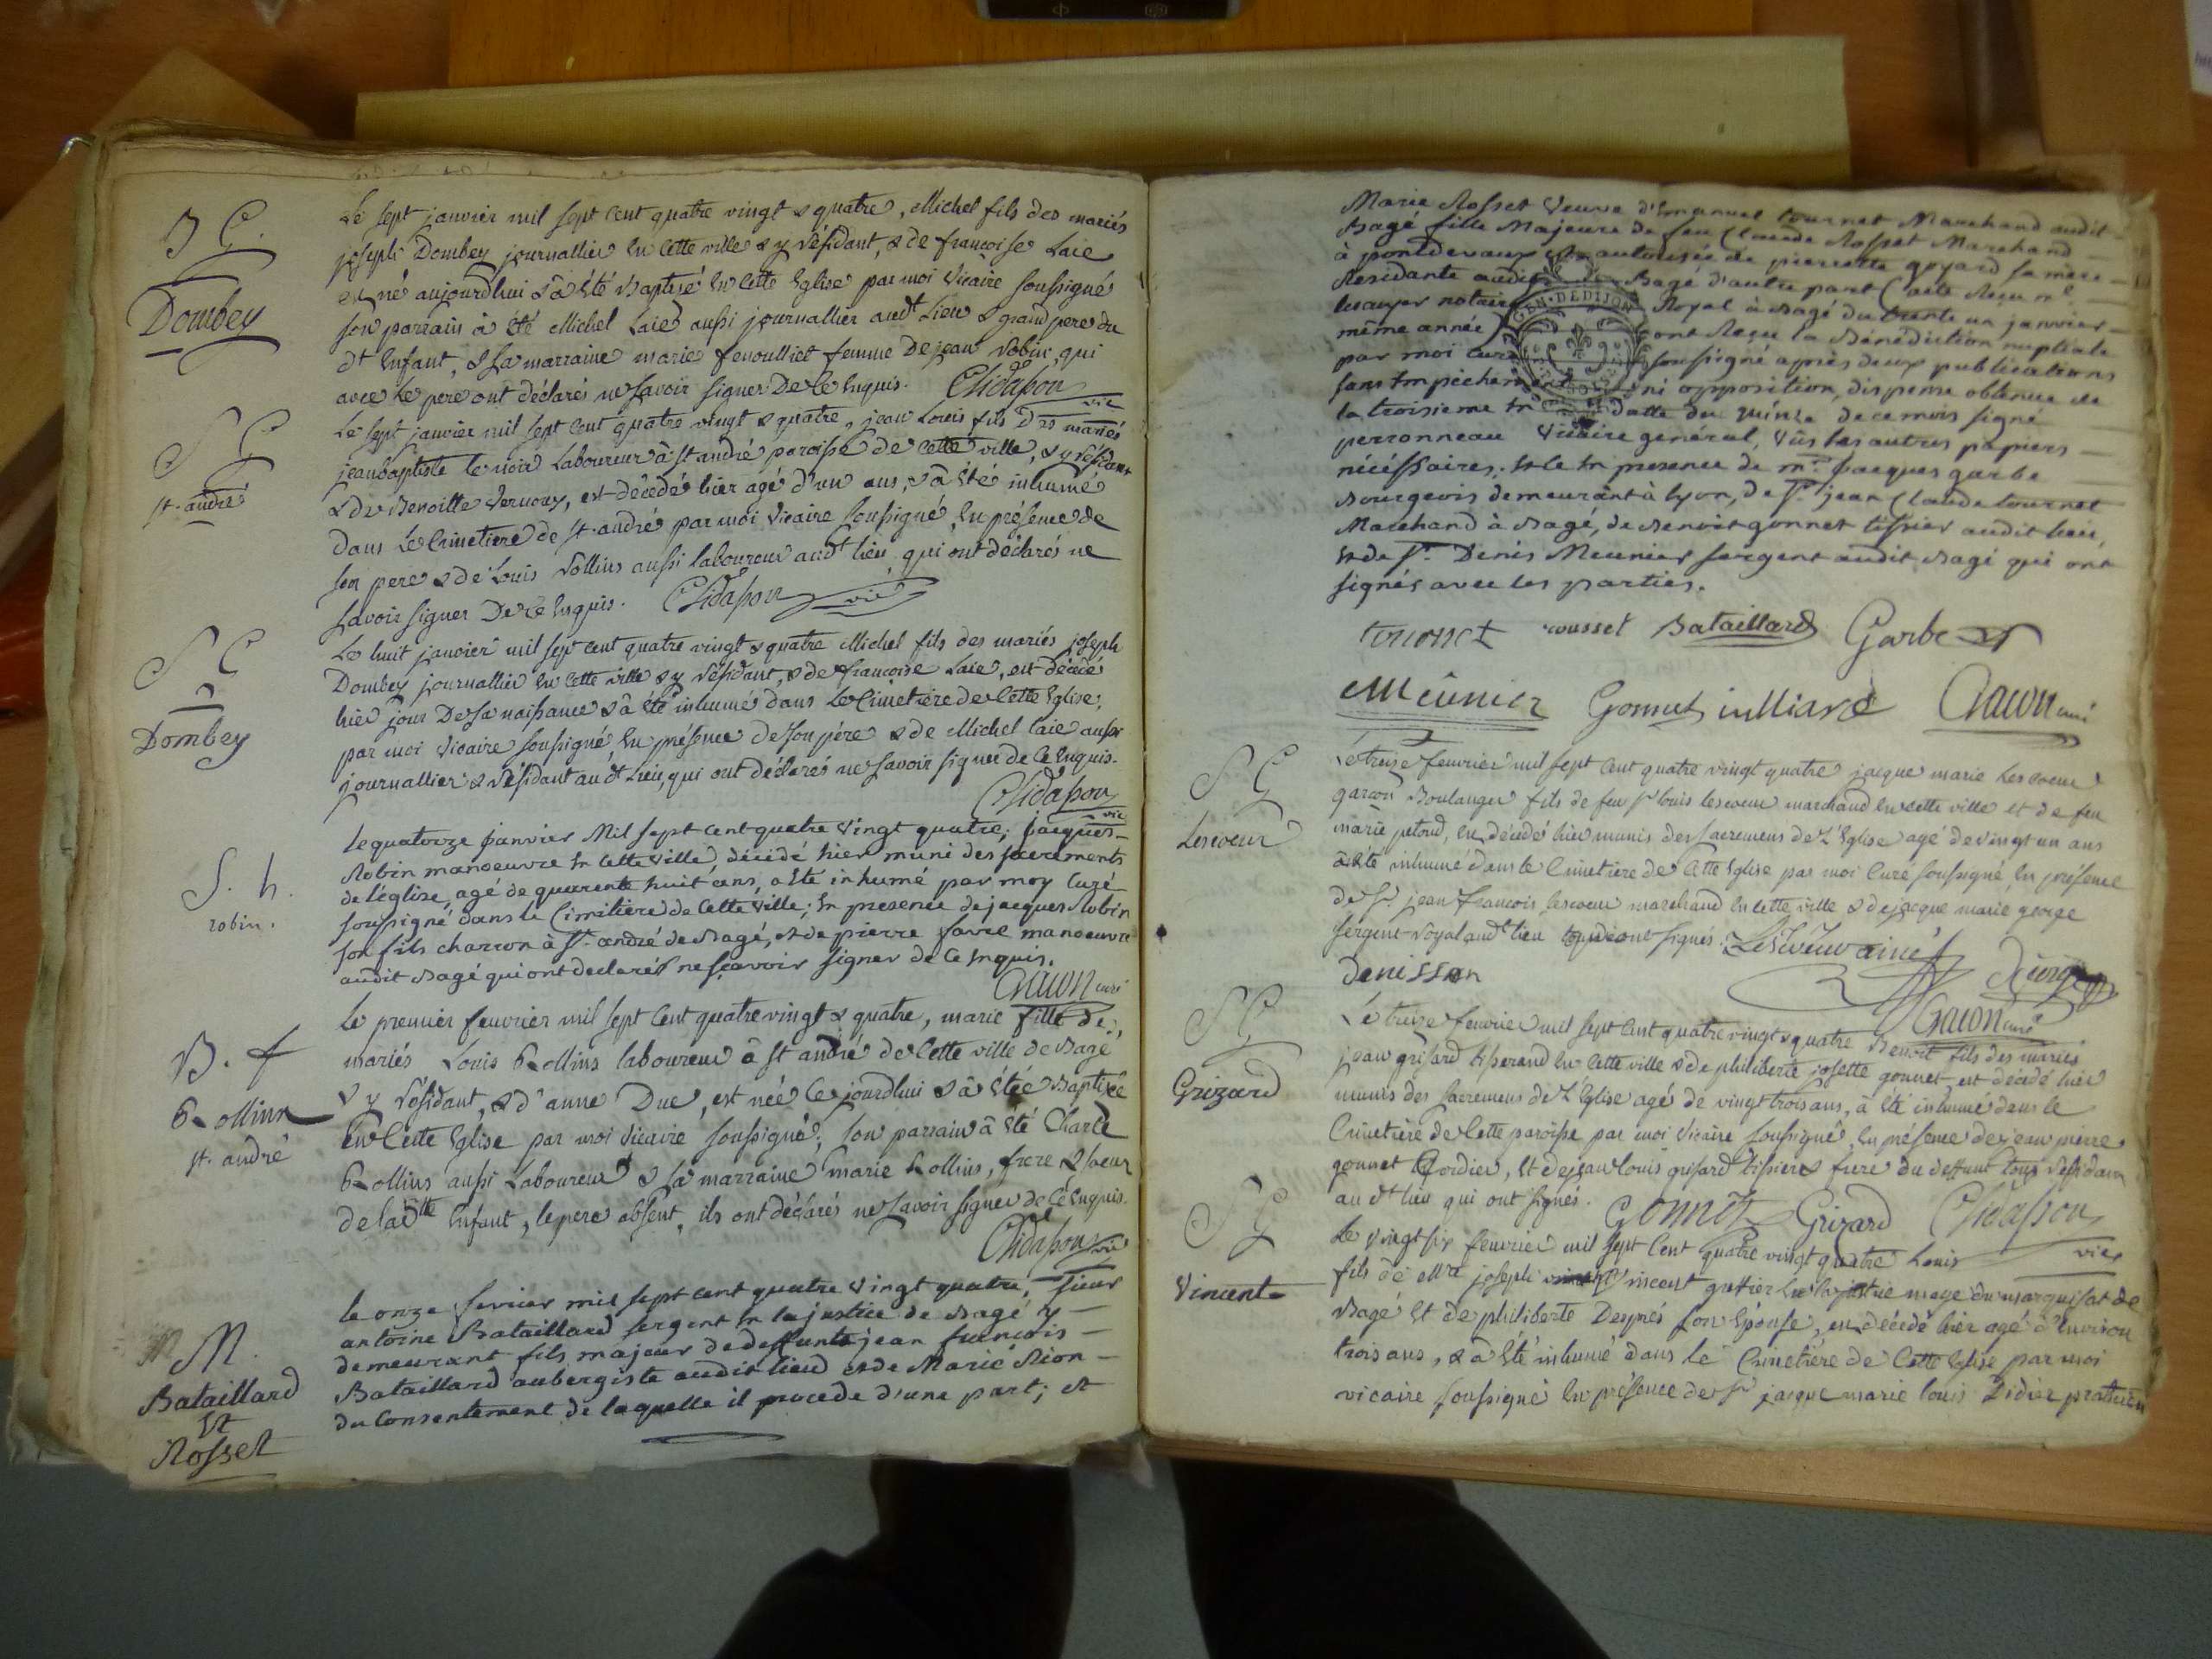 B G.
Dombey
Le sept janvier mil sept cent quatre vingt & quatre, Michel fils des mariés
joseph Dombey journallier en cette ville & y résidant, & de francoise Laie
est né aujourdhui & â été Baptisé en cette Eglise par moi vicaire soussigné
son parrain â été Michel Laie aussi journallier audt Lieu & grand pere du
dt Enfant, & sa marraine marie fenoulliet femme De jean Robin, qui
avec le pere ont déclarés ne savoir signer De ce Enquis. Chidasson
vic
S G
st. andré
Le sept janvier mil sept cent quatre vingt & quatre, jean Louis fils des mariés
jean baptiste le noir Laboureur à st andré paroisse de cette ville, & y résidant
& de Benoitte Vernoux, est décédé hier agé d'un ans, & â été inhumé
dans Le Cimetiere de st. andré par moi vicaire soussigné, En présence de
son pere & de Louis Rollins aussi laboureur audt lieu qui ont déclarés ne
savoir signer De ce Enquis. Chidasson vic
S G
Dombey
Le huit janvier mil sept cent quatre vingt & quatre Michel fils des mariés joseph
Dombey journallier en cette ville & y résidant, & de francoise Laie, est décédé
hier jour De sa naissance & â été inhumé dans Le Cimetiere de Cette Eglise,
par moi vicaire soussigné, En présence de son pére & de Michel Laie aussi
journallier & résidant audt Lieu, qui ont déclarés ne savoir signer de ce Enquis.
Chidasson
vic
S. h.
robin.
le quatorze janvier Mil sept cent quatre vingt quatre, jacques
Robin manoeuvre En Cette ville, décédé hier muni des sacrements
de l'église, agé de quarente huit ans, a été inhumé par moy curé
soussigné dans le Cimitiere de Cette ville; En presence de jacques Robin
son fils charron à st. andré de Bagé, et de pierre favre manoeuvre
audit Bagé qui ont declarés ne sçavoir signer de Ce Enquis.
Chacon curé
B. f
Rollins
st. andré
Le premier feuvrier mil sept cent quatre vingt & quatre, marie fille des
mariés Louis Rollins laboureur â st andré de Cette ville de Bagé
& y résidant, & d'anne Duc, est née ce jourdhui & â étée Baptisée
en Cette Eglise par moi vicaire soussigné; son parrain â été Charle
Rollins aussi Laboureur & sa marraine marie Rollins, frere & soeur
de ladtte Enfant, le pere absent, ils ont déclarés ne savoir signer de ce Enquis.
Chidasson vic
M.
Bataillard
Et
Rosset
le onze fevrier mil sept cent quatre vingt quatre, sieur
antoine Bataillard sergent En la justice de Bagé y
demeurant fils majeur de deffunts jean francois
Bataillard aubergiste audit lieu et de Marie Rion
du Consentement de laquelle il procede d'une part; et
Marie Rosset veuve d'Emanuel tournet Marchand audit
Bagé fille Majeure de feu Claude Rosset Marchand
à pontdevaux et autorisée de pierrette goyard sa mere
Residante audit Bagé d'autre part (acte Reçu me
notaire Royal à Bagé du trente un janvier
même année) ont Reçu la Bénédiction nuptiale
par moi curé soussigné après deux publications
sans Empèchement ni opposition, dispense obtenue de
la troisieme En datte du quinze de ce mois signé
perronneau vicaire genéral, vûs les autres papiers
nécéssaires, et le En presence de mr. jacques garbe
Bourgeois demeurant à lyon, de sr. jean Claude tournet
Marchand à Bagé, de Benoit gonnet tissier audit lieu,
et de sr. Denis Meunier sergent audit Bagé qui ont
signés avec les parties.
tournet rousset Bataillard Garbe
Meûnier Gonnet Chacon curé
S G
Lescoeur
Le treize feuvrier mil sept cent quatre vingt quatre jacque marie Lescoeur
garcon Boulanger fils de feu sr louis lescoeur marchand en cette ville et de feu
marie petoud, est décédé hier munis des sacremens de L'Eglise agé de vingt un ans
â été inhumé dans le Cimetiere de Cette Eglise par moi Curé soussigné En présence
de sr. jean francois lescoeur marchand en cette ville & de jacque marie george
sergent royal audt lieu qui ont signés. Lescoeur ainé
Denissen George
Chacon curé
S G
Grizard
Le treize feuvrier mil sept cent quatre vingt & quatre Benoit fils des mariés
jean grisard tisserand en cette ville & de philiberte josette gonnet est décédé hier
munis des sacremens de L'Eglise agé de vingt trois ans, â été inhumé dans le
Cimetiere de Cette paroisse par moi vicaire soussigné, En présence de jean pierre
gonnet Cordier, Et de jean louis grisard tissier & frere du deffunt tous résidans
au dt lieu qui ont signés. Gonnet Grizard Chidasson
vic
S G
Vincent
Le vingt six feuvrier mil sept cent quatre vingt quatre Louis
fils de Mre joseph vincent greffier en la justice mage du marquisat de
Bagé Et de philiberte Després son épouse, est décédé hier agé d'Environ
trois ans, & a été inhumé dans le Cimetière de Cette Eglise par moi
vicaire soussigné En présence de sr jacque marie louis Didier praticien